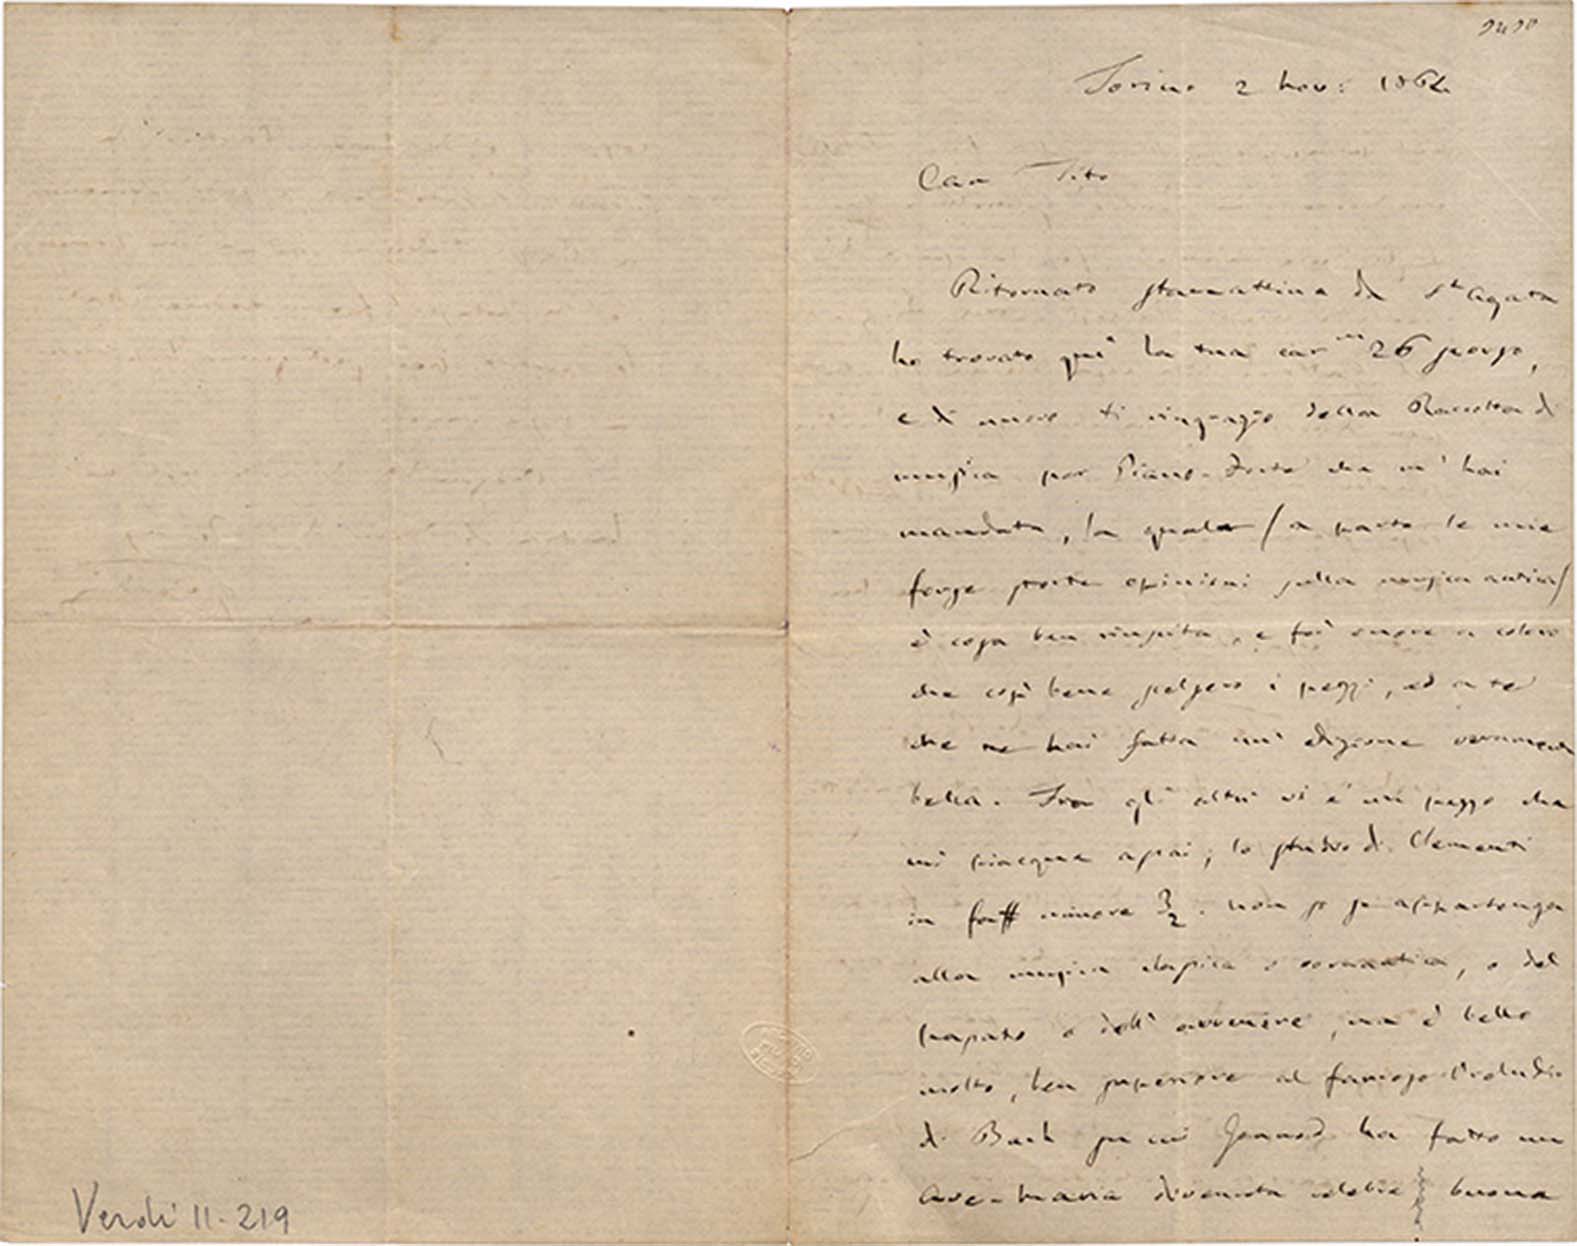 Torino 2 nov: 1864
Caro Tito
Ritornato stamattina da St Agata
ho trovato quì la tua car.ma 26 scorso,
e di nuovo ti ringrazio della Raccolta di
musica per Piano-Forte che m'hai
mandata, la quale / a parte le mie
forse storte opinioni sulla musica antica /
è cosa ben riuscita, e farà onore a coloro
che così bene scelsero i pezzi, ed a te
che ne hai fatta un' edizione veramente
bella. Fra gli altri vi è un pezzo che
mi piacque assai; lo studio di Clementi
in fa# minore 3/2. Non so se appartenga
alla musica classica o romantica, o del
passato o dell' avvenire, ma è bello
molto, ben superiore al famoso Preludio
di Bach su cui Gounod ha fatto un
Ave-Maria divenuta celebre buona
Verdi 11-219